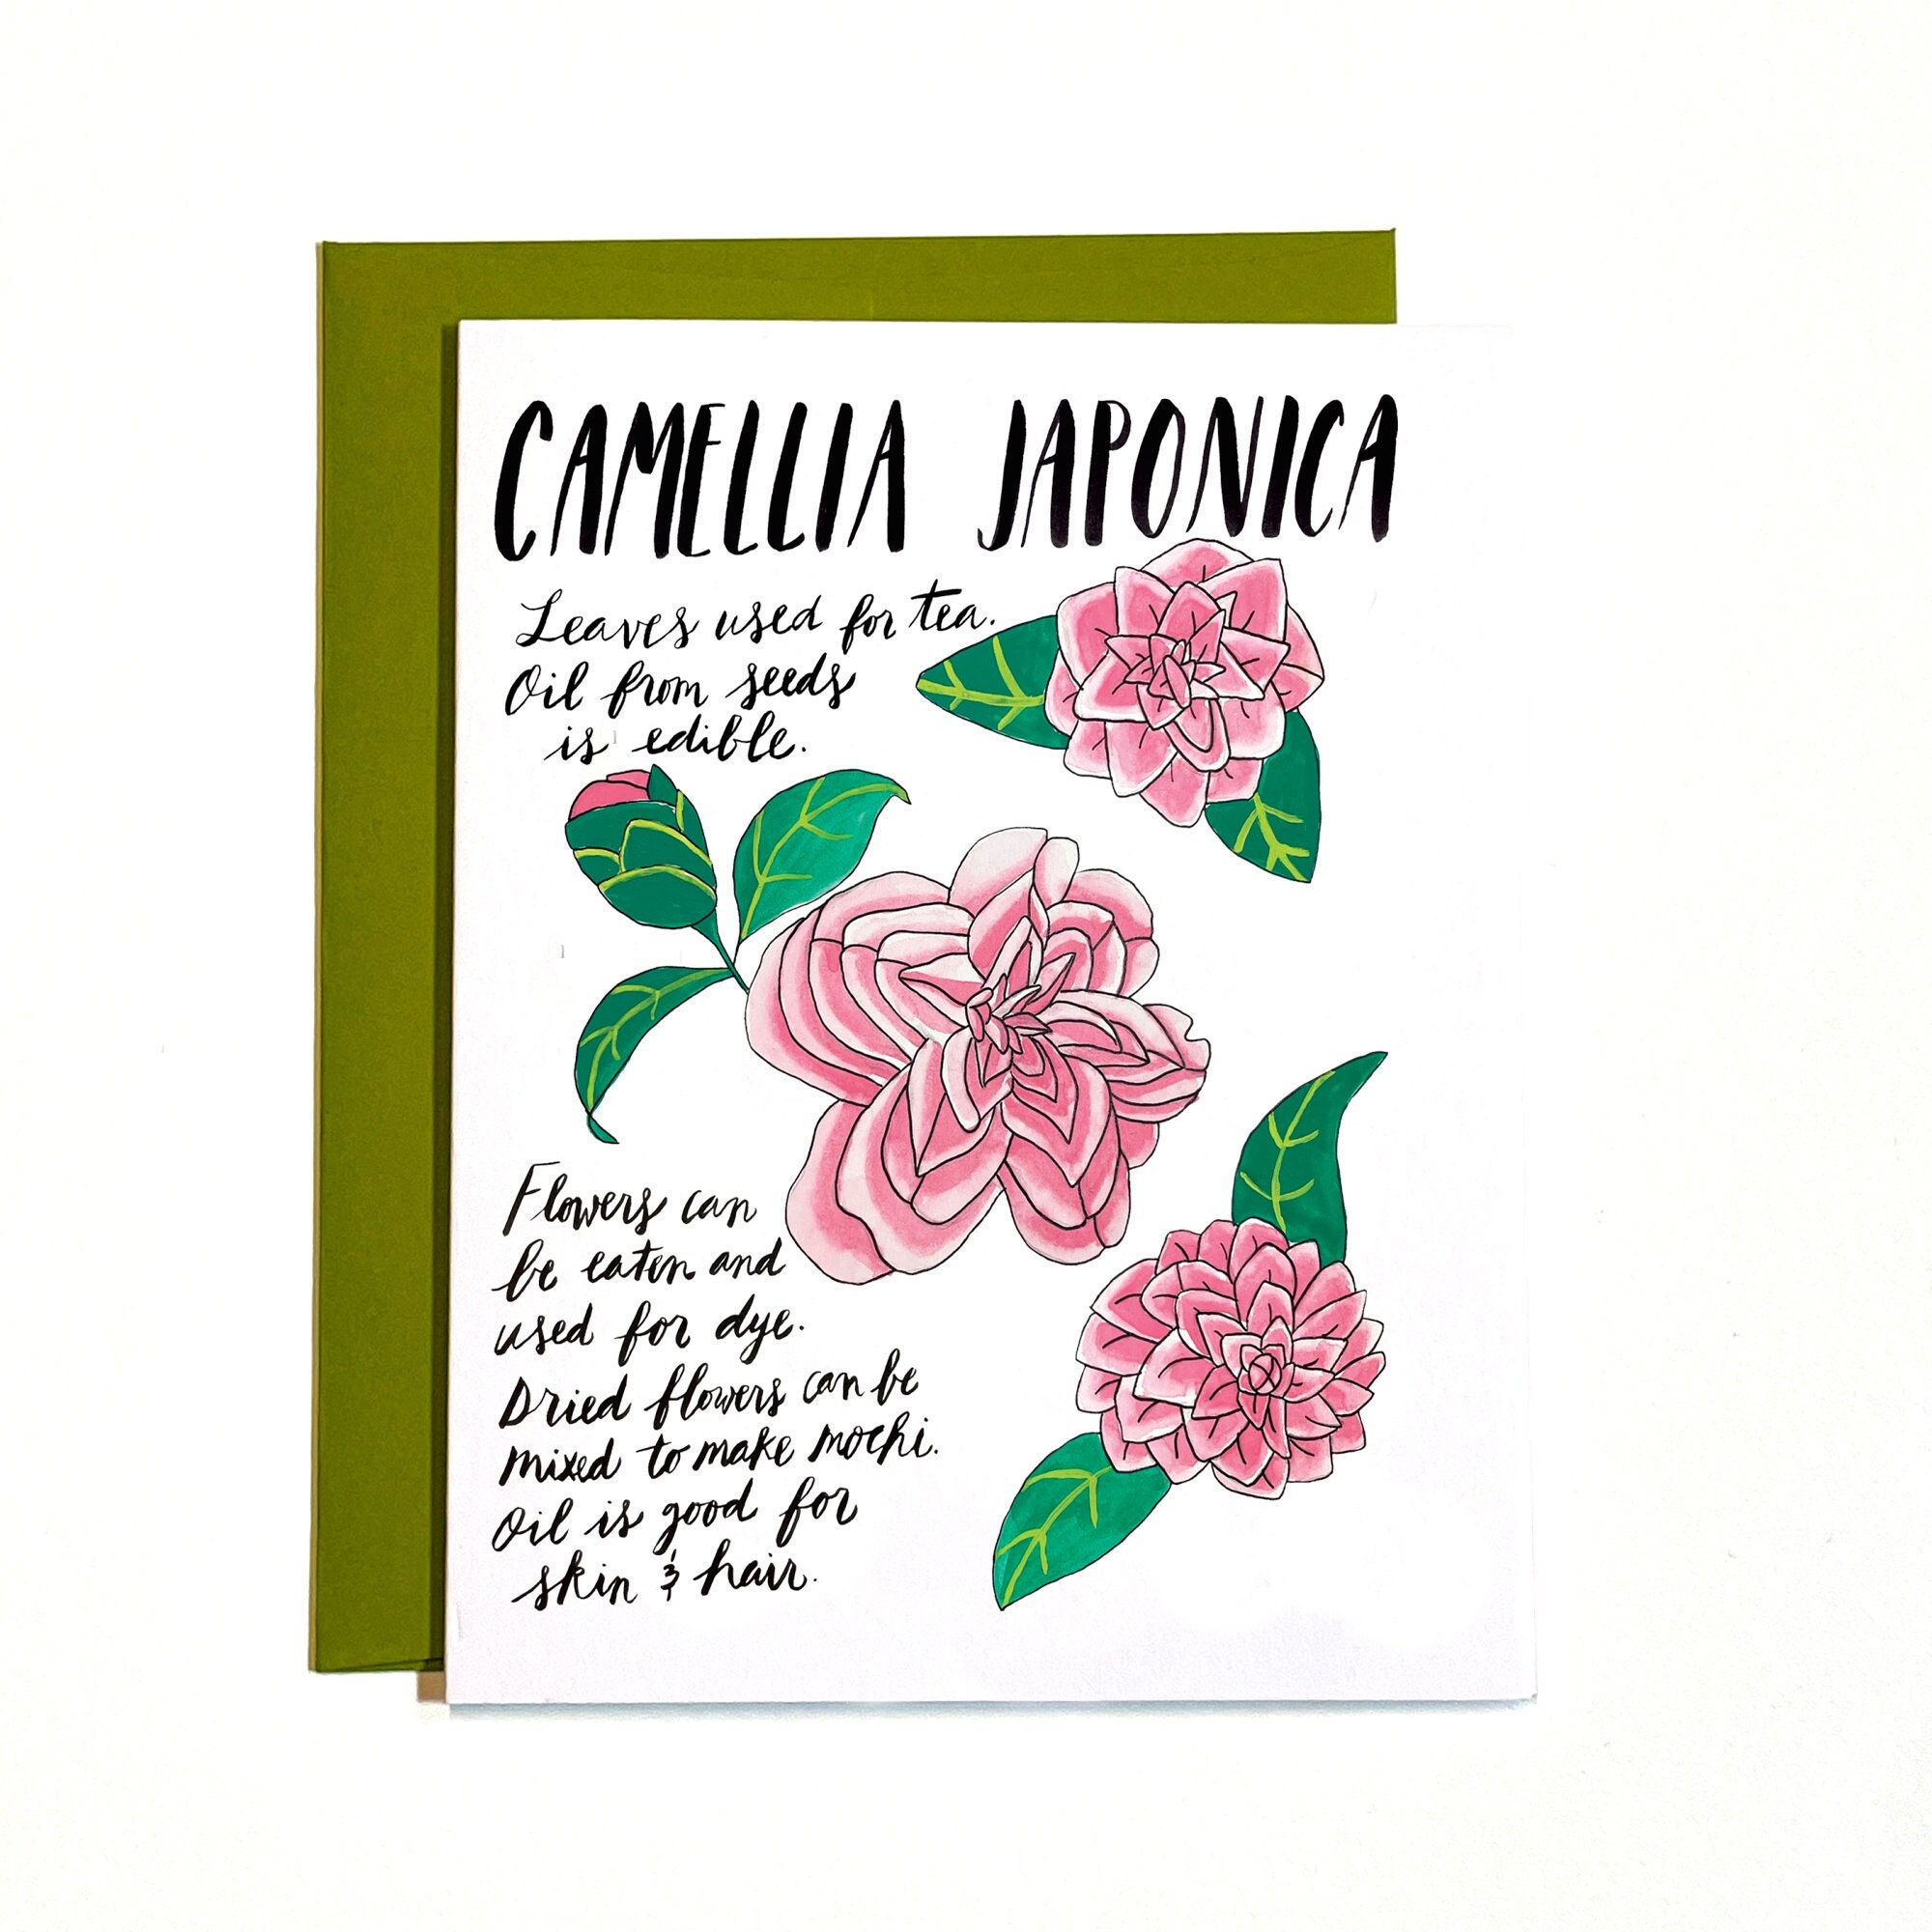 CAMELLIA JAPONICA
Leaves used for tea.
Oil from seeds
is edible.
Flowers can
be eaten and
used for dye.
Dried flowers can be
mixed to make mochi.
Oil is good for
skin & hair.